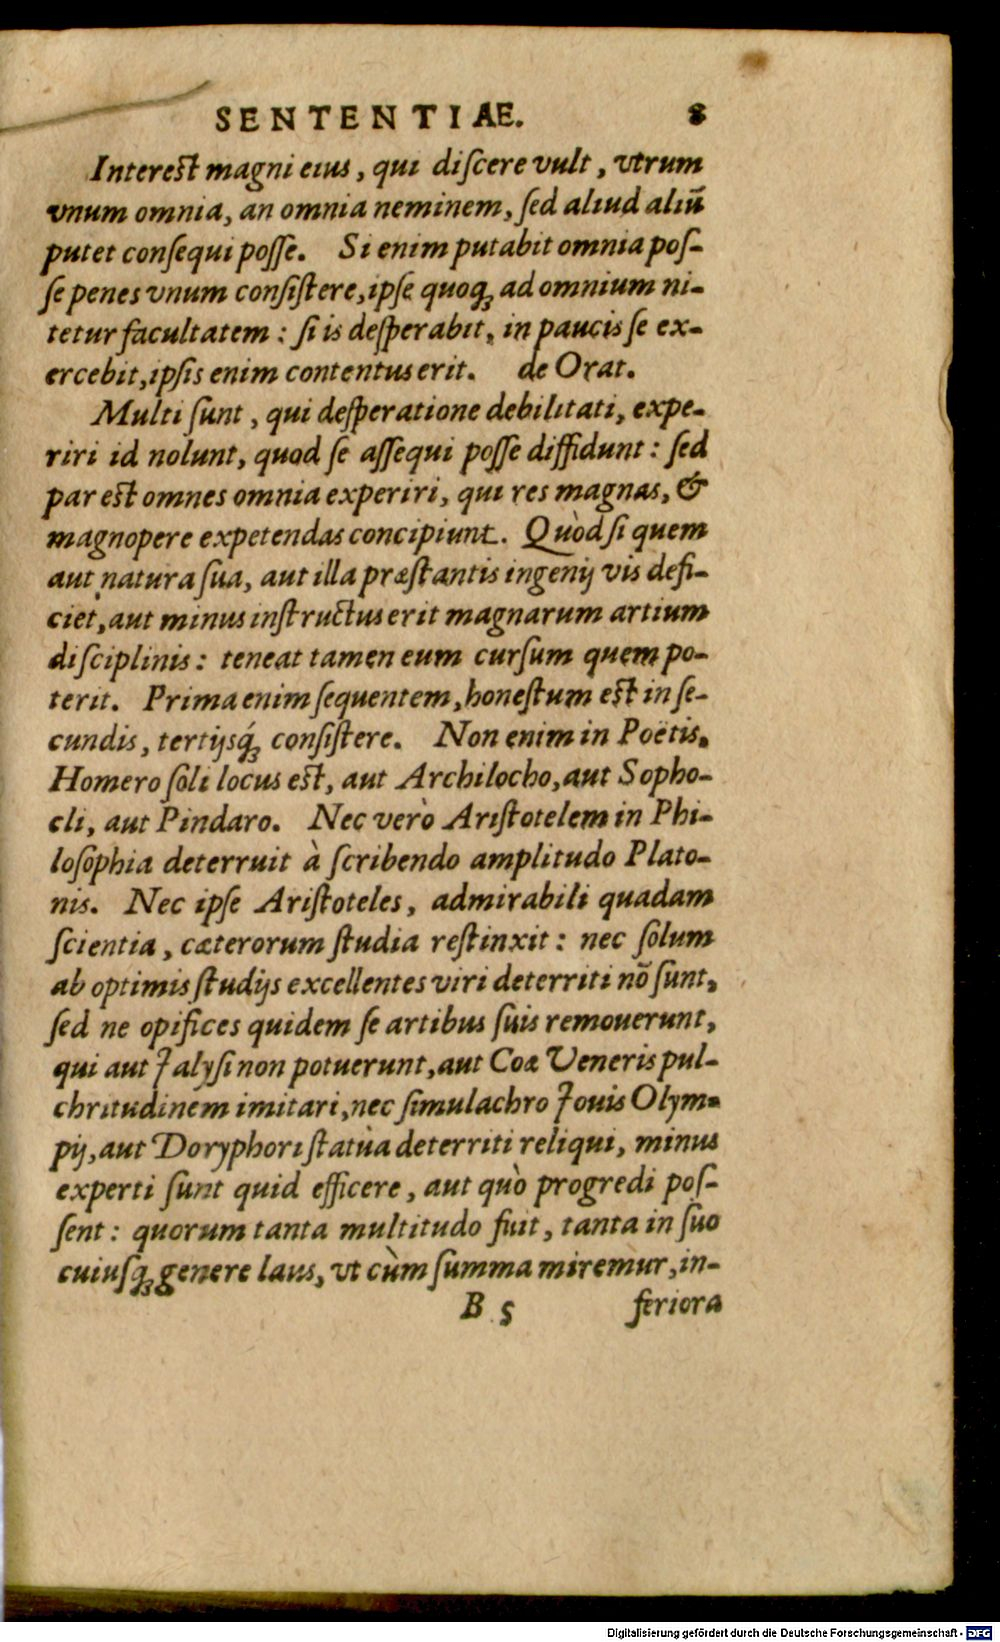 SENTENTIAE. 8
Intereſt magni eius, qui diſcere vult, vtrum
vnum omnia, an omnia neminem, ſed aliud aliũ
putet conſequi poſſe. Si enim putabit omnia poſ-
ſe penes vnum conſiſtere, ipſe quoq; ad omnium ni-
tetur facultatem: ſi is deſperabit, in paucis ſe ex-
ercebit, ipſis enim contentus erit. de Orat.
Multi ſunt, qui deſperatione debilitati, expe-
riri id nolunt, quod ſe aſſequi poſſe diffidunt: ſed
par eſt omnes omnia experiri, qui res magnas, &
magnopere expetendas concipiunt. Quòd ſi quem
aut natura ſua, aut illa præſtantis ingenij vis defi-
ciet, aut minus inſtructus erit magnarum artium
diſciplinis: teneat tamen eum curſum quem po-
terit. Prima enim ſequentem, honeſtum eſt in ſe-
cundis, tertijsq́; conſiſtere. Non enim in Poëtis,
Homero ſoli locus eſt, aut Archilocho, aut Sopho-
cli, aut Pindaro. Nec verò Ariſtotelem in Phi-
loſophia deterruit à ſcribendo amplitudo Plato-
nis. Nec ipſe Ariſtoteles, admirabili quadam
ſcientia, cæterorum ſtudia reſtinxit: nec ſolum
ab optimis ſtudijs excellentes viri deterriti nõ ſunt,
ſed ne opifices quidem ſe artibus ſuis remouerunt,
qui aut Jalyſi non potuerunt, aut Coæ Veneris pul-
chritudinem imitari, nec ſimulachro Jouis Olym-
pij, aut Doryphori ſtatùa deterriti reliqui, minus
experti ſunt quid efficere, aut quò progredi poſ-
ſent: quorum tanta multitudo fuit, tanta in ſuo
cuiuſq; genere laus, vt cùm ſumma miremur, in-
B 5 feriora
Digitalisierung gefördert durch die Deutsche Forschungsgemeinschaft - DFG